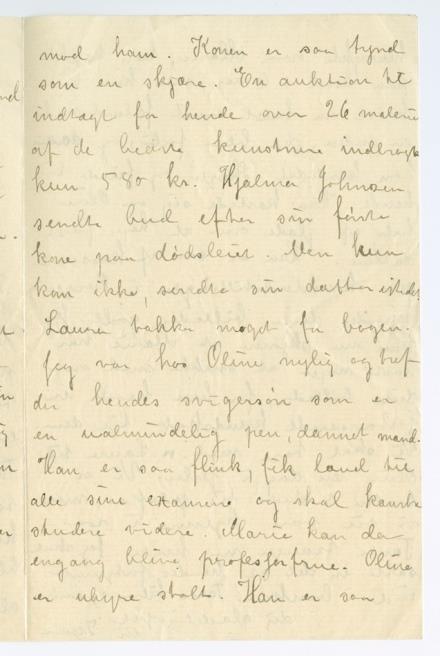 mod ham. Konen er saa tynd
som en skjære. En auktion til
indtægt for hende over 26 malerier
af de bedste kunstnere indbragte
kun 580 kr. Hjalmar Johnsen
sendte bud efter sin første
kone paa dødsleiet. Men hun
kom ikke, sendte sin datter istedet
Laura takker meget for bogen.
Jeg var hos Oline nylig og traf
der hendes svigersøn som er
en ualmindelig pen, dannet mand.
Han er saa flink, fik laud til
alle sine examene og skal kanske
studere videre. Marie kan da
engang blive professorfrue. Oline
er uhyre stolt. Han er saa